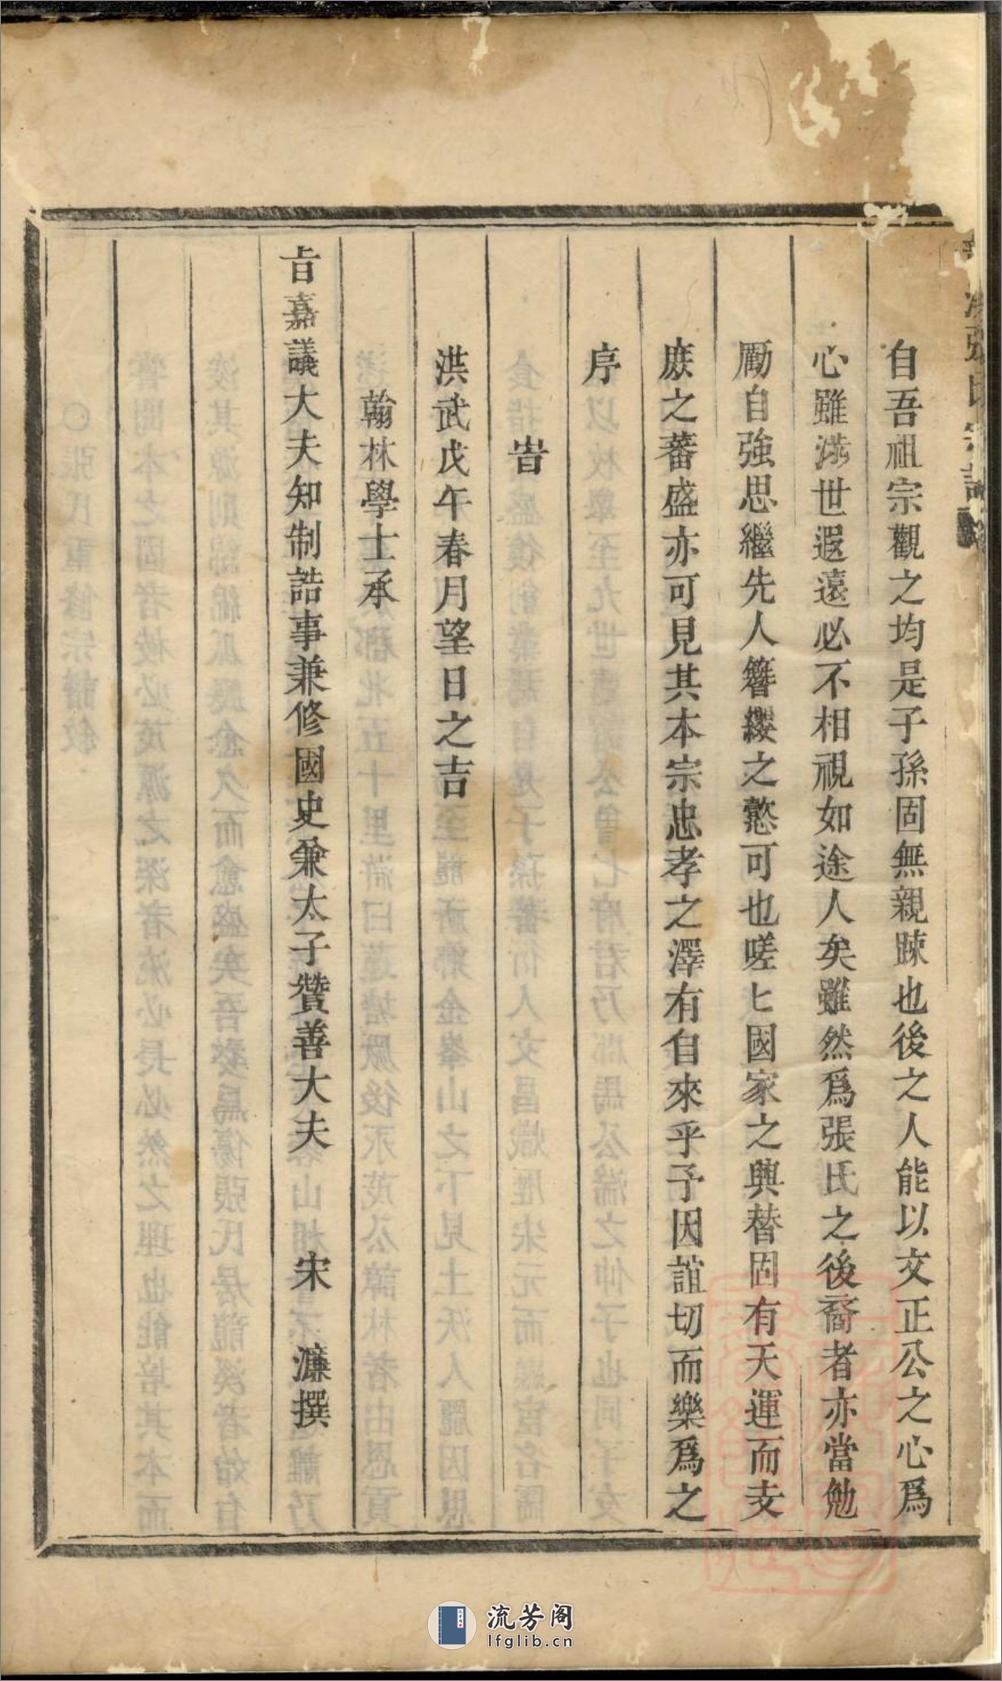 張氏宗譜
自吾祖宗觀之均是子孫固無親踈也後之人能以文正公之心爲
心雖㳺世遐遠必不相視如途人矣雖然爲張氏之後裔者亦當勉
勵自強思繼先人簪纓之懿可也嗟匕國家之興替固有天運而支
族之蕃盛亦可見其本宗忠孝之澤有自來乎予因誼切而樂爲之
序
旹
洪武戊午春月望日之吉
翰林學士承
旨嘉議大夫知制誥事兼修國史兼太子贊善大夫　宋　濂撰
流芳阁
lfglib.cn